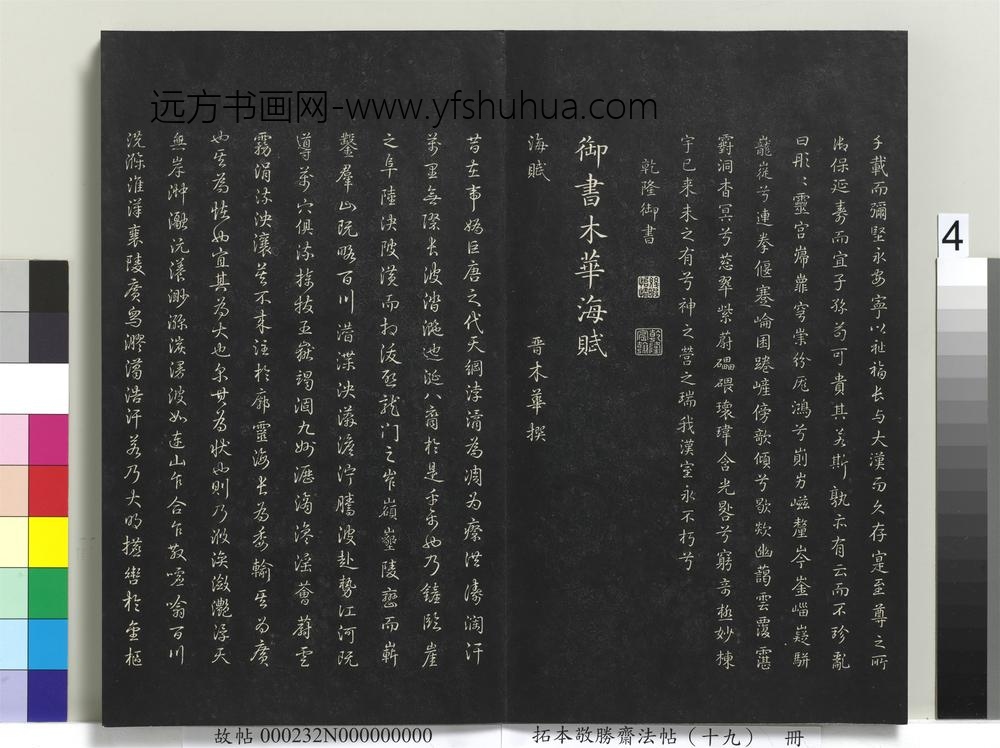 千載而彌堅永安寧以祉福长与大漢而久存寔至尊之所
御保延壽而宜子孫苟可貴其若斯孰亦有云而不珍亂
曰彤〻靈宮巋嶵穹崇紛厖鴻兮崱屴嵫釐岑崟崰嶷駢
巃嵸兮連拳偃蹇崘囷踡嵼傍欹傾兮歇欻幽藹雲覆霮
䨴洞杳冥兮葱翠紫蔚礧碨瓌瑋含光晷兮窮奇極妙棟
宇已来未之有兮神之營之瑞我漢室永不朽兮
乾隆御書
御書木華海賦
海賦
晋木華撰
昔在帝媯巨唐之代天綱浡潏為凋为瘵洪濤瀾汗
萬里無際长波涾㴔迆涎八裔於是乎禹也乃鏟臨崖
之阜陸決陂潢而相沷啓龍门之岝嶺墾陵巒而嶄
鑿羣山既略百川潜渫泱漭澹泞騰波赴勢江河既
導萬穴俱流掎拔五嶽竭涸九州瀝滴滲淫薈蔚雲
霧涓流泱瀼莫不来注於廓靈海长為委輸其为廣
也其為怪也宜其為大也尔其為狀也則乃浟湙瀲灔浮天
無岸沖瀜沆瀁渺瀰湠漫波如连山乍合乍散噓噏百川
洗滌淮漢襄陵廣舄㵧㵿浩汗若乃大明摭轡於金樞
远方书画网-www.yfshuhua.com
4
故帖 000232N000000000
拓本敬勝齋法帖（十九） 冊